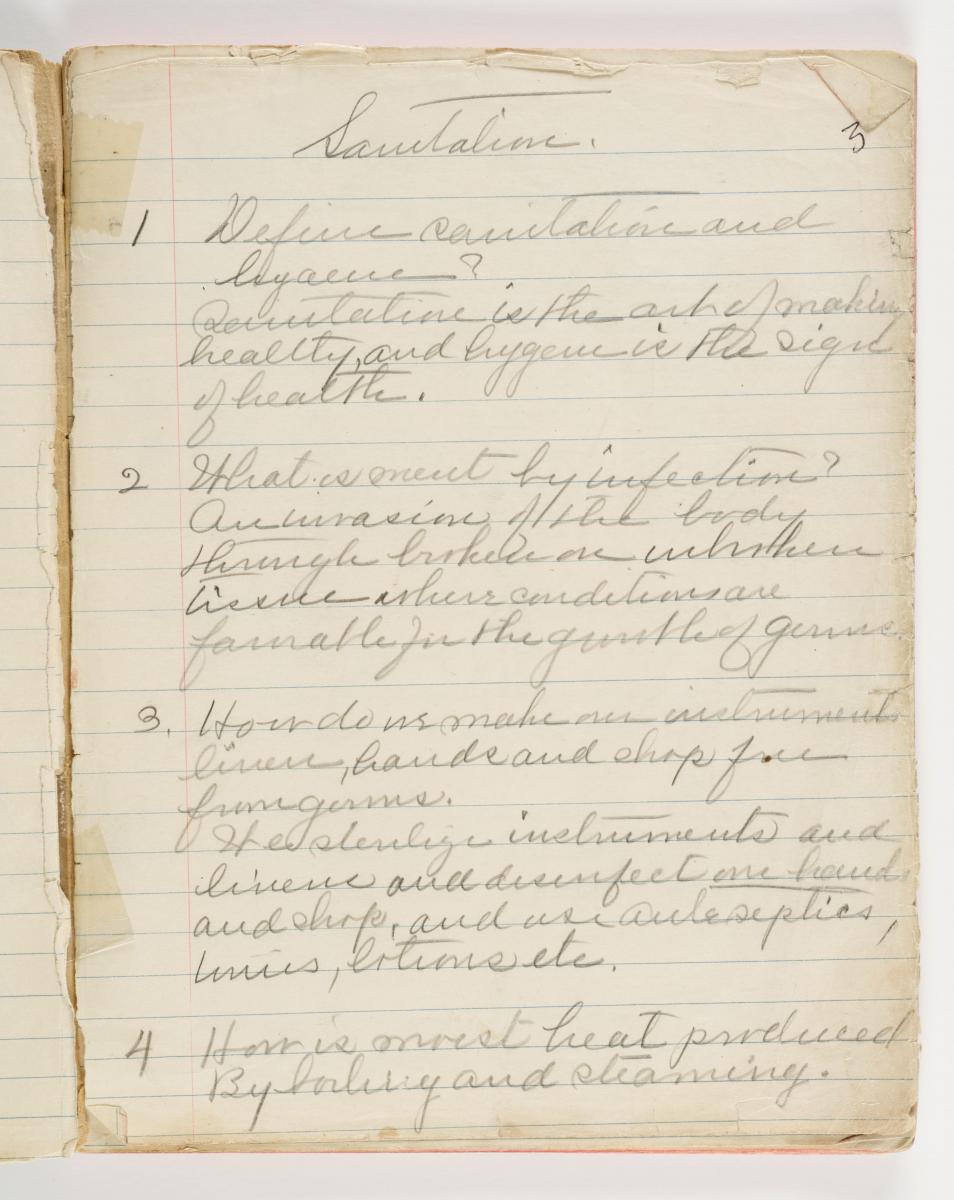 Sanitation.
3
1 Define sanitation and
hygaene?
Sanitation is the art of making
healthy, and hygene is the sign
of health.
2 What is ment by infection?
An invasion of the body
through broken or unbroken
tissue where conditions are
favorable for the growth of germs.
3. How do we make our instruments
linen, hands and shop free
from germs.
We sterilize instruments and
linens and disinfect our hands
and shop, and use anteseptics,
lotions etc.
4 How is moist heat produced
By boiling and steaming.